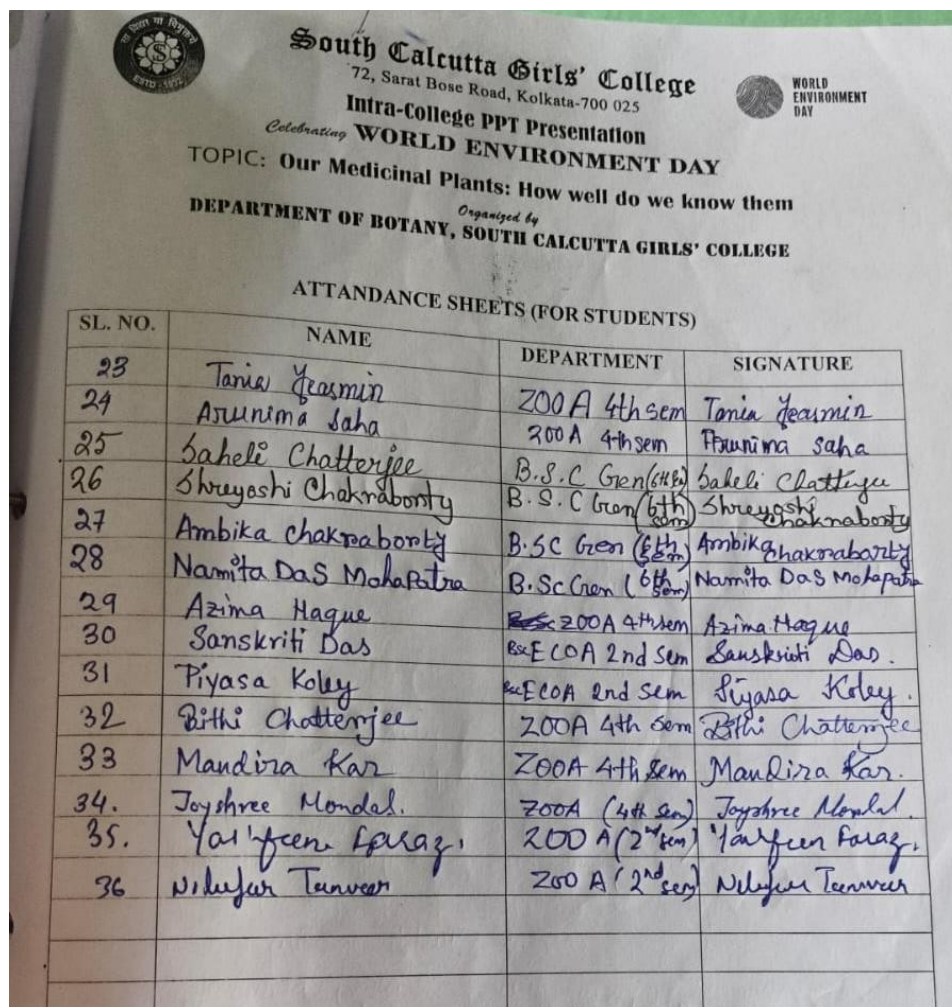 या विद्या या विमुक्तये
ESTD - 1932
South Calcutta Girls' College
72, Sarat Bose Road, Kolkata-700 025
WORLD
ENVIRONMENT
DAY
Intra-College PPT Presentation
Celebrating WORLD ENVIRONMENT DAY
TOPIC: Our Medicinal Plants: How well do we know them
Organized by
DEPARTMENT OF BOTANY, SOUTH CALCUTTA GIRLS' COLLEGE
ATTANDANCE SHEETS (FOR STUDENTS)
SL. NO. NAME DEPARTMENT SIGNATURE
23 Tania Yeasmin ZOOA 4th sem Tania Yeasmin
24 Arunima Saha ZOOA 4th sem Arunima Saha
25 Saheli Chatterjee B.S.C Gen (6th Sem) Saheli Chatterjee
26 Shreyashi Chakraborty B.S.C Gen (6th sem) Shreyashi Chakraborty
27 Ambika Chakraborty B.SC Gen (6th sem) Ambika Chakraborty
28 Namita Das Mohapatra B.Sc Gen (6th sem) Namita Das Mohapatra
29 Azima Haque ZOOA 4th sem Azima Haque
30 Sanskriti Das BSc ECOA 2nd Sem Sanskriti Das.
31 Piyasa Koley BSc ECOA 2nd Sem Piyasa Koley.
32 Bithi Chatterjee ZOOA 4th Sem Bithi Chatterjee
33 Mandira Kar ZOOA 4th Sem Mandira Kar.
34. Joyshree Mondal. ZOOA (4th Sem) Joyshree Mondal.
35. ZOOA (2nd sem)
36 Nilufur Tanveer ZOOA (2nd sem) Nilufur Tanveer